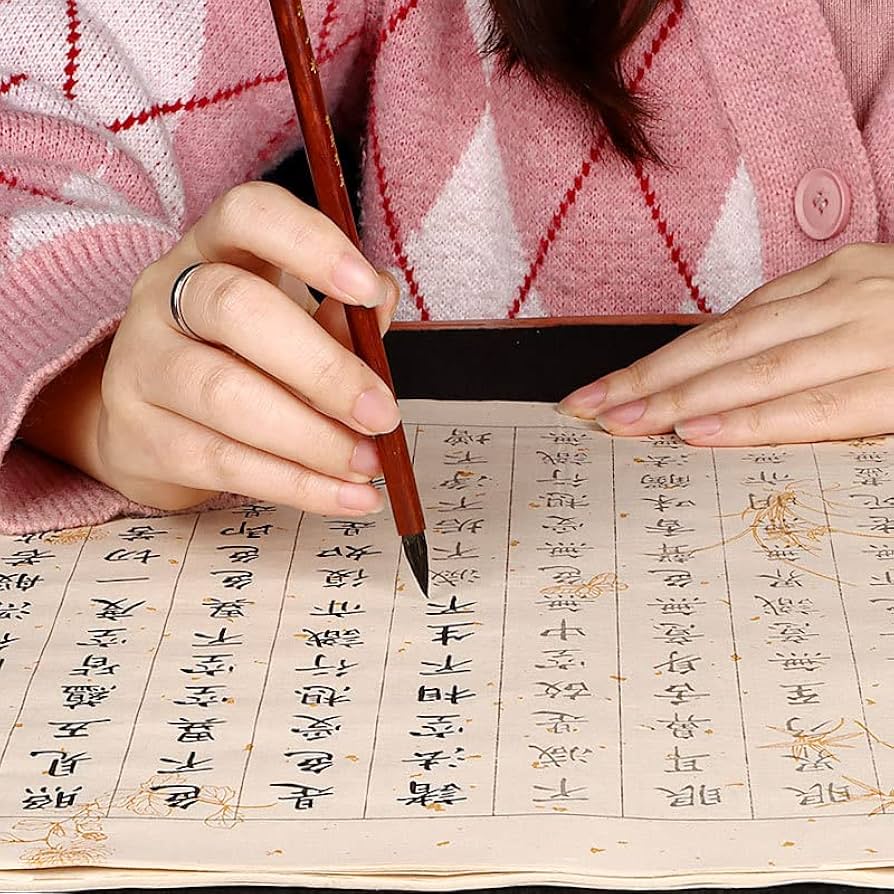 照見五蘊皆空度一切苦
色不異空空不異色色即
是色受想行識亦復如是
諸法空相不生不滅不垢不淨不增
不減是故空中無色無受想行識無
眼耳鼻舌身意無色聲香味觸法無
眼界乃至無意識界無無明亦無